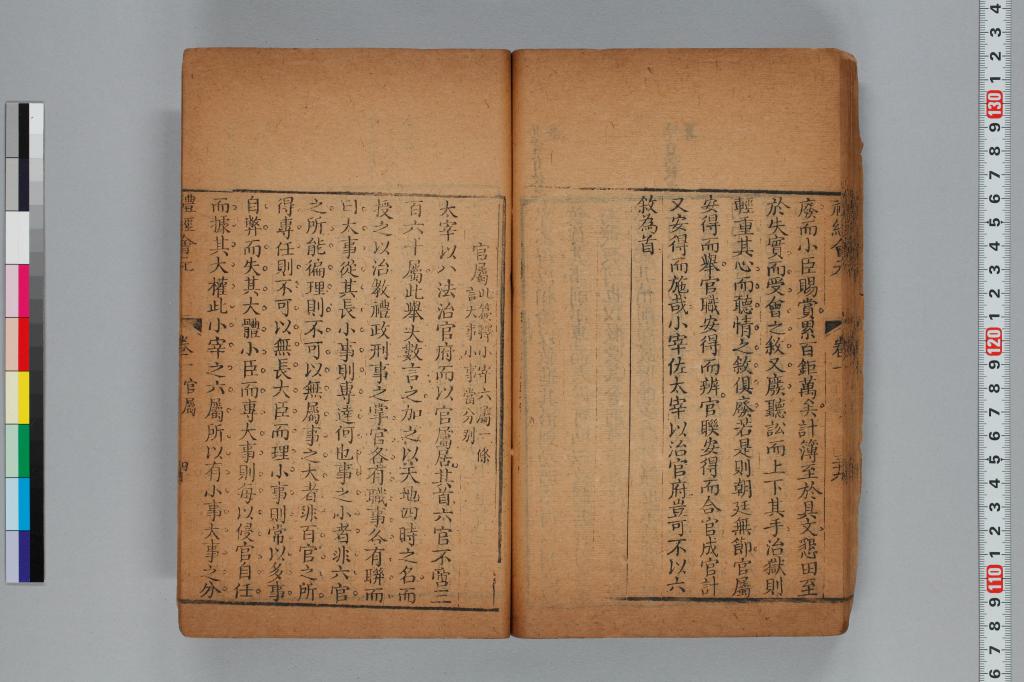 廢而小臣賜賞累百鉅萬矣計簿至於具文懇田至
於失實而受會之敘又廢聽訟而上下其手治獄則
輕重其心而聽情之敘俱廢若是則朝廷無節官屬
安得而舉官職安得而辨官聯安得而合官成官計
又安得而施哉小宰佐太宰以治官府豈可不以六
敘為首
官屬此篇釋小宰六屬一條
言大事小事當分別
太宰以八法治官府而以官屬居其首六官不啻三
百六十屬此舉大數言之加之以天地四時之名而
授之以治教禮政刑事之掌官各有職事各有聯而
曰大事從其長小事則專達何也事之小者非六官
之所能徧理則不可以無屬事之大者非百官之所
得專任則不可以無長大臣而理小事則常以多事
自弊而失其大體小臣而專大事則每以侵官自任
而據其大權此小宰之六屬所以有小事大事之分
禮經會元 卷一 官屬